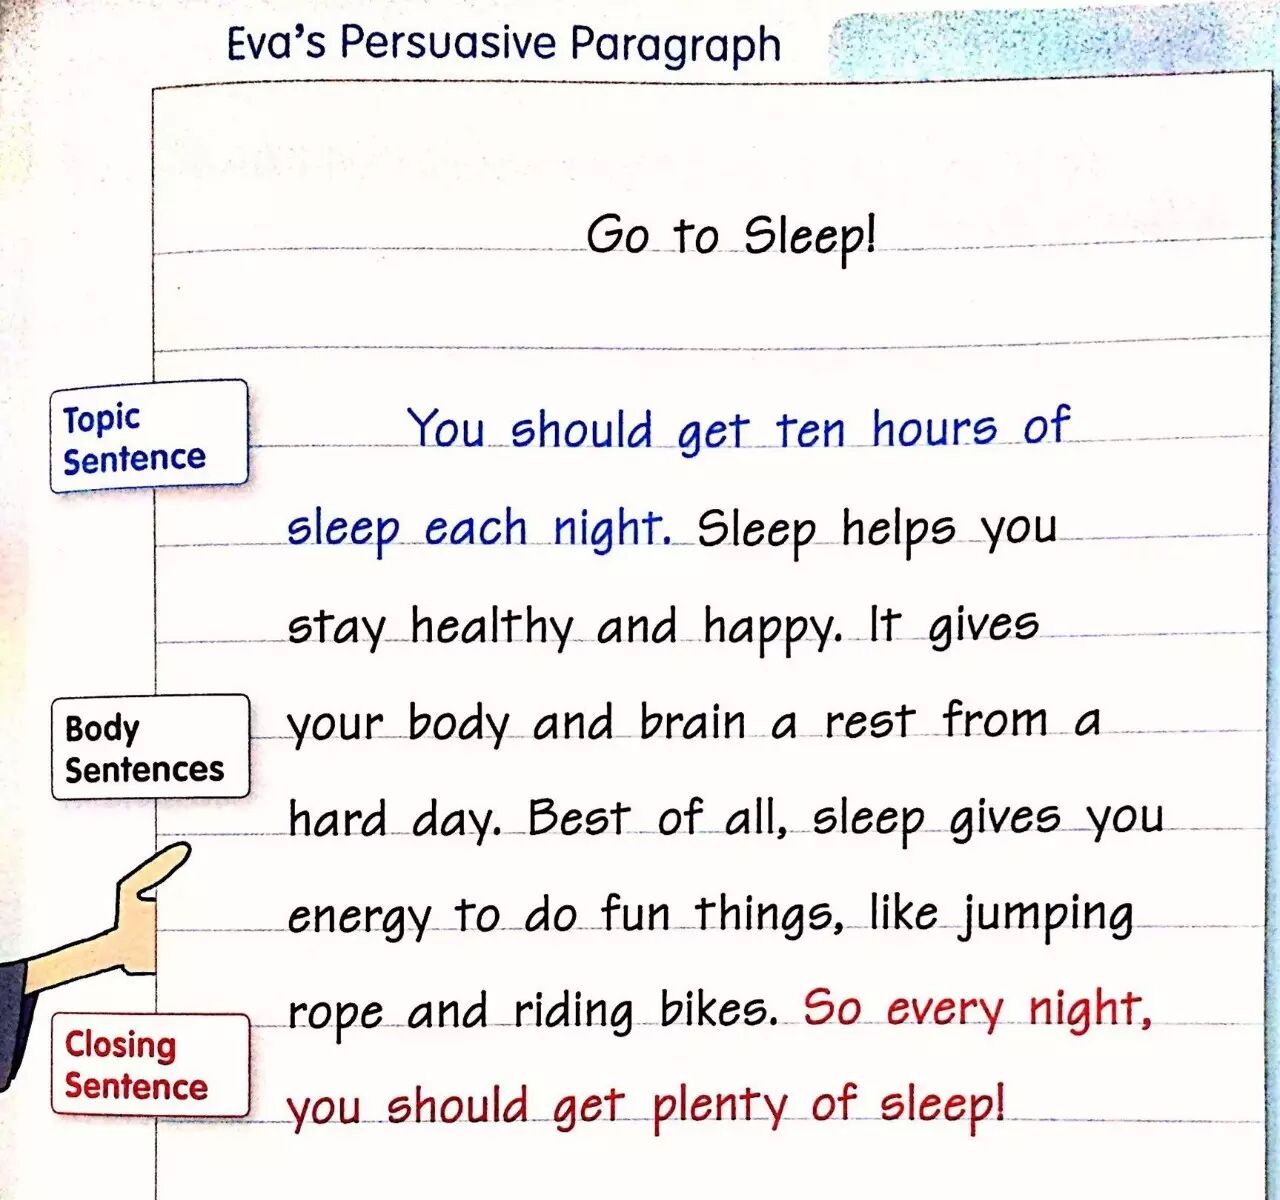 Eva's Persuasive Paragraph
Go to Sleep!
Topic
Sentence
You should get ten hours of
sleep each night. Sleep helps you
stay healthy and happy. It gives
Body
Sentences
your body and brain a rest from a
hard day. Best of all, sleep gives you
energy to do fun things, like jumping
rope and riding bikes. So every night,
Closing
Sentence
you should get plenty of sleep!